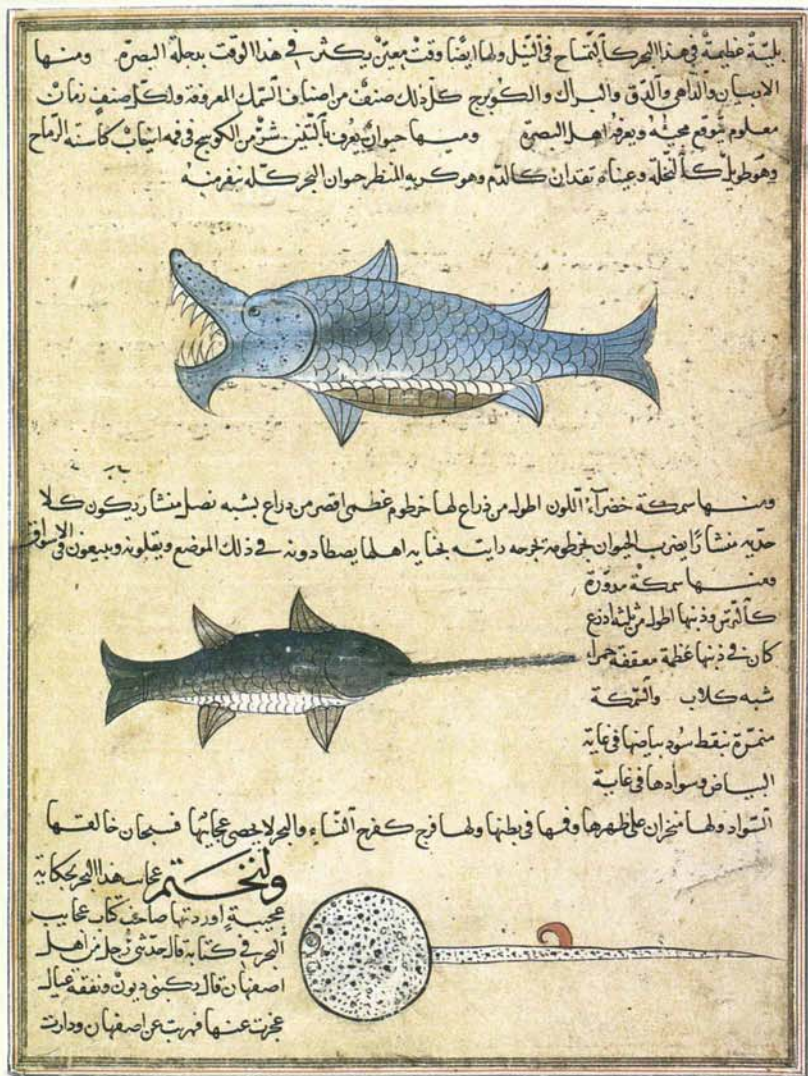 بليّة عظيمة في هذا البحر كالتمساح في النيل ولها ايضا وقت معين يكثر في هذا الوقت بدجلة البصرة ومنها
الاربيان والداهي والدق والبراك والكوبرج كل ذلك صنف من اصناف السمك المعروفة ولكل صنف زمان
معلوم يتوقع مجيئه ويعرفه اهل البصرة ومنها حيوان يعرف بالتنين شر من الكوسج في فمه انياب كاسنة الرماح
وهو طويل كالنخلة وعيناه تقدان كالدم وهو كريه المنظر حيوان البحر كله ينفر منه
ومنها سمكة خضراء اللون اطول من ذراع لها خرطوم عظمي اقصر من ذراع يشبه نصل منشار يكون كلا
حديه منشارا يضرب الحيوان بخرطومه فيجرحه رايته اهلها يصطادونه في ذلك الموضع ويقلونه ويبيعون في الاسواق
ومنها سمكة مدورة
كالترس وذنبها اطول من ثلثة اذرع
كان في ذنبها عظمة معقفة حمراء
شبه كلاب والسمكة
منمرة بنقط سود بياضها في غاية
البياض وسوادها في غاية
السواد ولها منخران على ظهرها وفمها في بطنها ولها فرج كفرج النساء والبحر لا يحصى عجايبها فسبحان خالقها
ولنختم عجايب هذا البحر بحكاية
عجيبة اوردتها صاحب كتاب عجايب
البحر في كتابه قال حدثني رجل من اهل
اصفهان قال ركبني ديون ونفقة عيال
عجزت عنها فهربت عن اصفهان ودارت